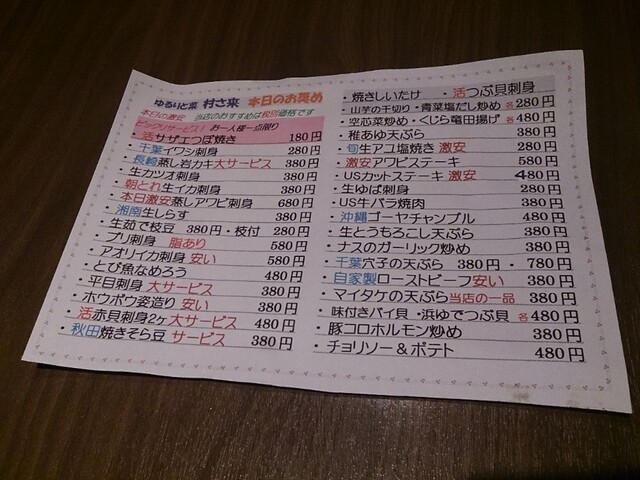 ゆるりと菜 村さ来 本日のお奨め
本日の激安 当店のおすすめは税別価格です
ビックリサービス! お一人様一点限り
・活サザエつぼ焼き 180円
・千葉イワシ刺身 280円
・長崎蒸し岩カキ大サービス 380円
・生カツオ刺身 380円
・朝とれ生イカ刺身 380円
・本日激安蒸しアワビ刺身 680円
・湘南生しらす 380円
・生茹で枝豆 380円・枝付 280円
・ブリ刺身 脂あり 580円
・アオリイカ刺身 安い 580円
・とび魚なめろう 480円
・平目刺身 大サービス 380円
・ホウボウ姿造り 安い 380円
・活赤貝刺身2ヶ大サービス 480円
・秋田焼きそら豆 サービス 380円
・焼きしいたけ ・活つぶ貝刺身
・山芋の千切り・青菜塩だし炒め 各280円
・空芯菜炒め・くじら竜田揚げ 各480円
・稚あゆ天ぷら 380円
・旬生アユ塩焼き 激安 280円
・激安アワビステーキ 580円
・USカットステーキ 激安 480円
・生ゆば刺身 280円
・US牛バラ焼肉 380円
・沖縄ゴーヤチャンプル 480円
・生とうもろこし天ぷら 380円
・ナスのガーリック炒め 380円
・千葉穴子の天ぷら 380円・780円
・自家製ローストビーフ安い 380円
・マイタケの天ぷら当店の一品 380円
・味付きバイ貝・浜ゆでつぶ貝 各480円
・豚コロホルモン炒め 380円
・チョリソー&ポテト 480円